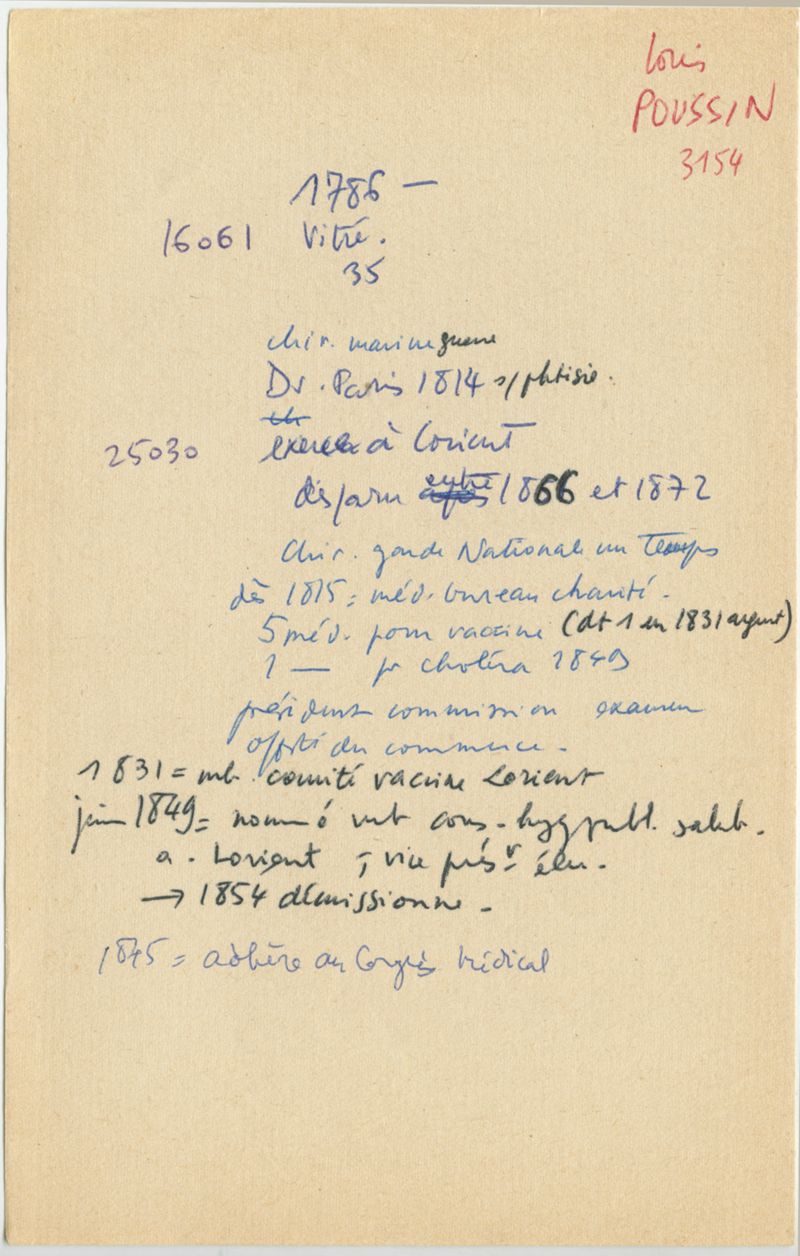 Louis
POUSSIN
3154
1786 —
16061 Vitré.
35
chir. marine guerre
Dr. Paris 1814 s/phtisie.
ch
25030 exerce à Lorient
disparu après entre 1866 et 1872
Chir. garde Nationale un temps
dès 1815 = méd. bureau charité.
5 méd. pour vaccine (dt 1 en 1831 argent)
1 — pr choléra 1849
président commission examen
offté du commerce.
1831 = mb. comité vaccine Lorient
juin 1849 = nommé mb cons. hyg publ. salub.
a. Lorient ; vice présr élu.
→ 1854 démissionne.
1845 = adhère au Congrès Médical